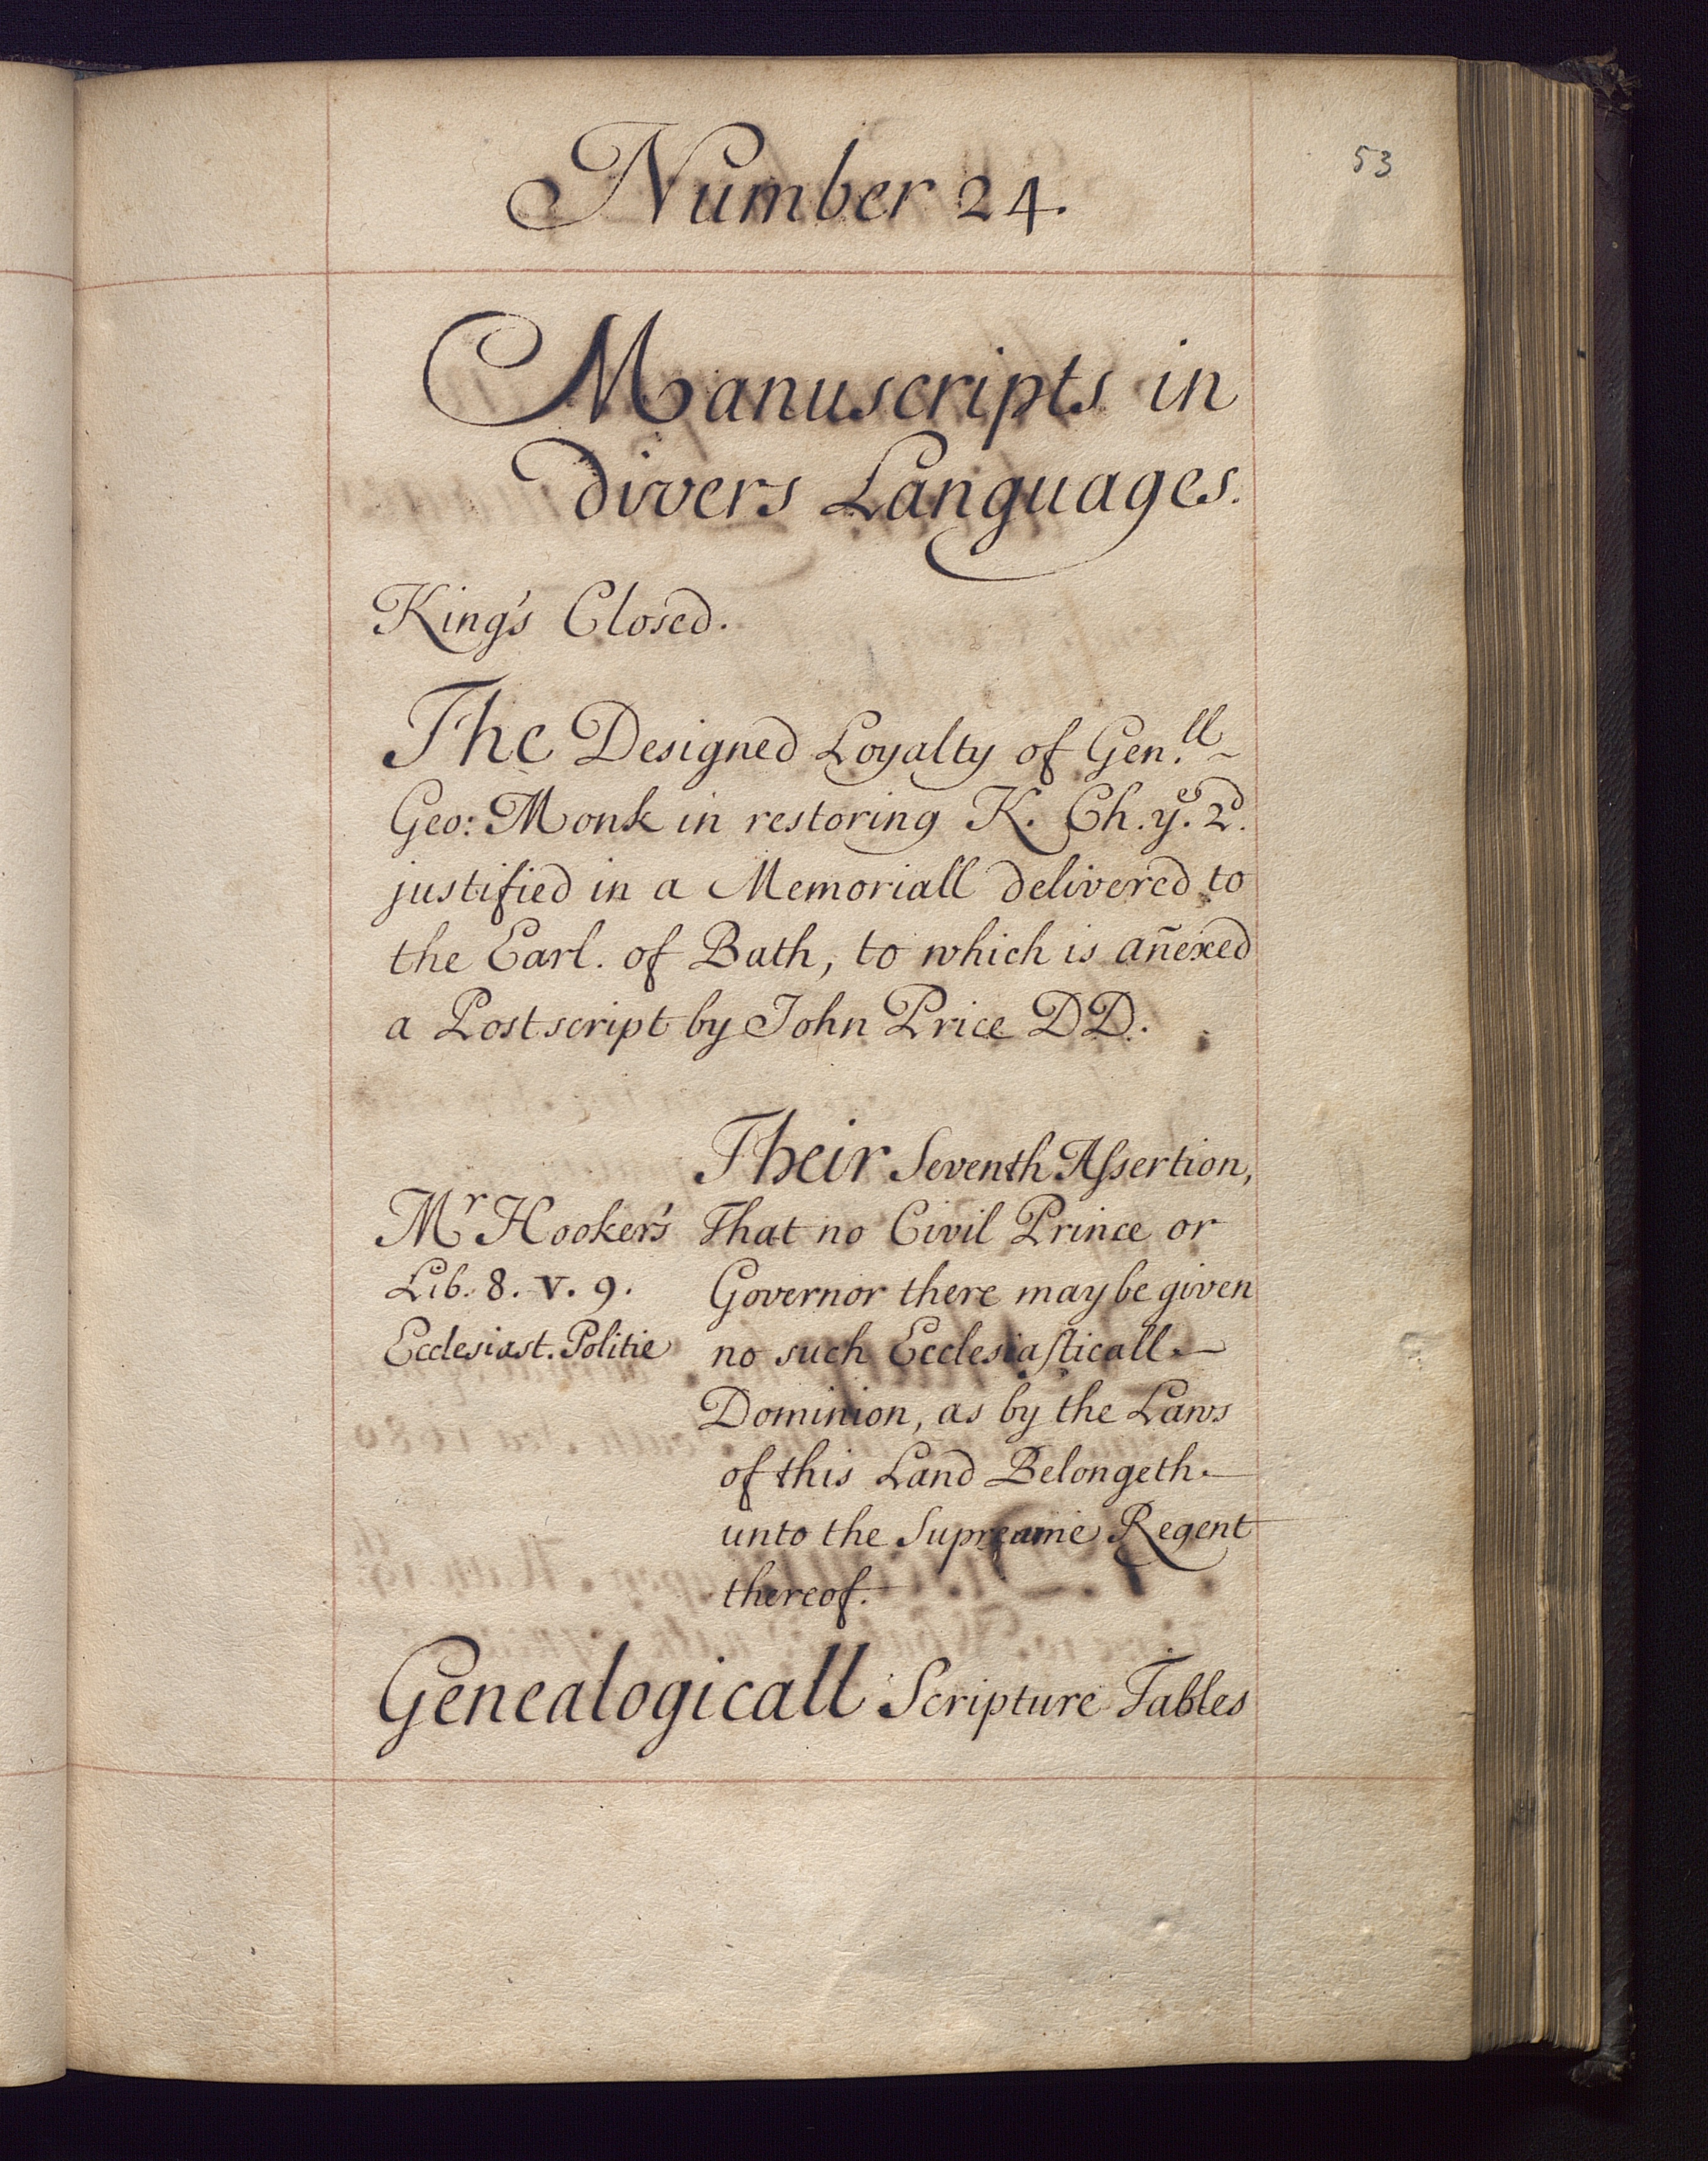 53
Number 24.
Manuscripts in
divers Languages.
King's Closed.
The Designed Loyalty of Gen.ll
Geo: Monk in restoring K. Ch. ye. 2d.
justified in a Memoriall delivered to
the Earl. of Bath, to which is añexed
a Postscript by John Price DD.
Mr Hooker's
Lib. 8. v. 9.
Ecclesiast. Politie
Their Seventh Aſsertion,
That no Civil Prince or
Governor there may be given
no such Ecclesiaſticall
Dominion, as by the Laws
of this Land Belongeth
unto the Supreame Regent
thereof.
Genealogicall Scripture Tables